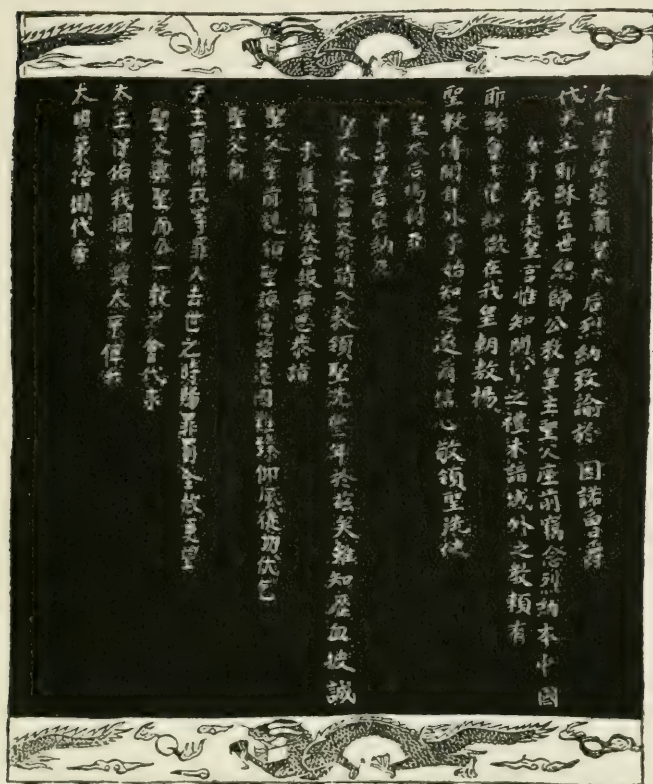 大明寧聖慈肅皇太后烈納致諭於 因諾曾爵
代天主耶穌在世總師公教皇主聖父座前竊念烈納本中國
女子忝處皇宮惟知閫中之禮未諳域外之教賴有
耶穌會士瞿紗微在我皇朝敷揚
聖教傳聞自外予始知之遂爾信心敬領聖洗使
皇太后瑪利亞
中宮皇后亞納及
皇太子當定並請入教領聖洗叁年於茲矣雖知瀝血披誠
未獲涓埃答報每思恭詣
聖父座前親領聖誨慮茲遠國難臻仰風徒切伏乞
聖父向
天主前憐我等罪人去世之時賜罪罰全赦更望
聖父與聖而公一教之會代求
天主保佑我國中興太平俾我
大明第拾捌代帝